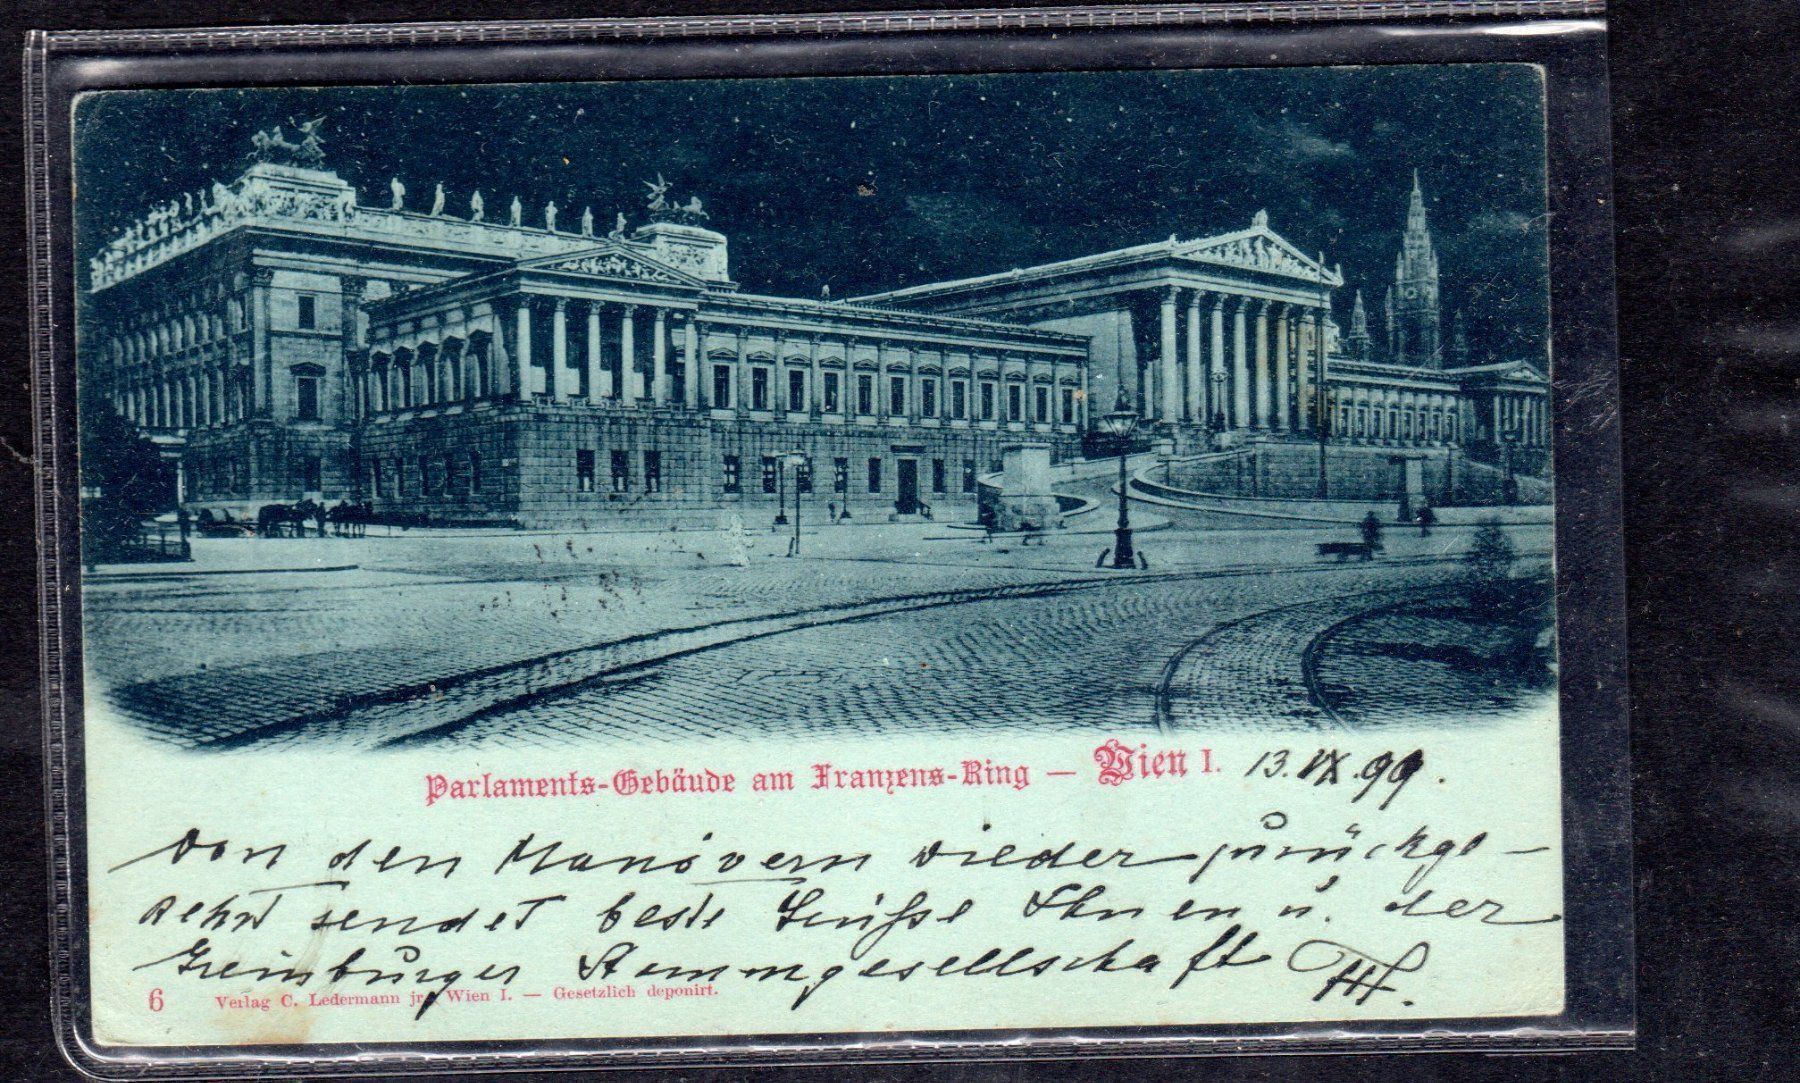 Parlaments-Gebäude am Franzens-Ring — Wien I. 13. IX. 99.
Von den Manövern wieder zurückge-
kehrt sendet beste Grüsse Ihnen u. der
Greinburger Stammgesellschaft
6 Verlag C. Ledermann jr., Wien I. — Gesetzlich deponirt.